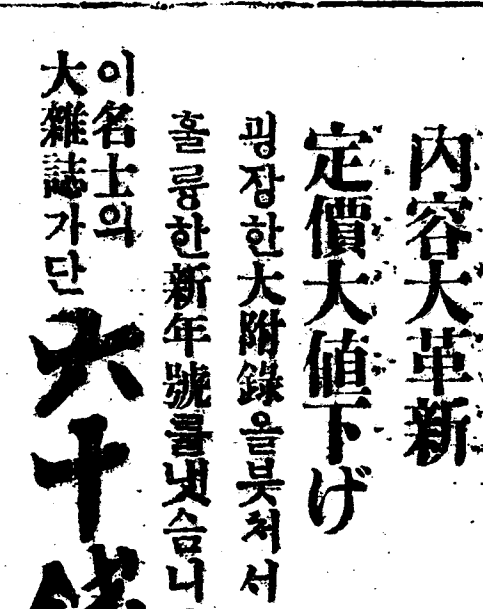 內容大革新
定價大値下げ
굉장한大附錄을붓처서
훌륭한新年號를냇슴니
이名士의
大雜誌가단
六十錢